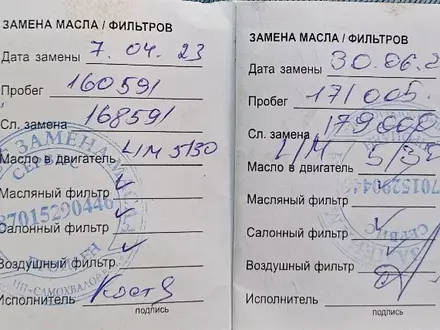 ЗАМЕНА МАСЛА / ФИЛЬТРОВ
Дата замены 7.04.23
Пробег 160591
Сл. замена 168591
Масло в двигатель L/M 5/30
Масляный фильтр ✓
Салонный фильтр ✓
Воздушный фильтр ✓
Исполнитель Костя
подпись
ЗАМЕНА МАСЛА
СЕРВИС
87015290446
ИП «САМОХВАЛОВ
ЗАМЕНА МАСЛА / ФИЛЬТРОВ
Дата замены 30.06.2
Пробег 171005.
Сл. замена 179000
Масло в двигатель L/M 5/3
Масляный фильтр ✓
Салонный фильтр ✓
Воздушный фильтр
Исполнитель
подпись
7015290446